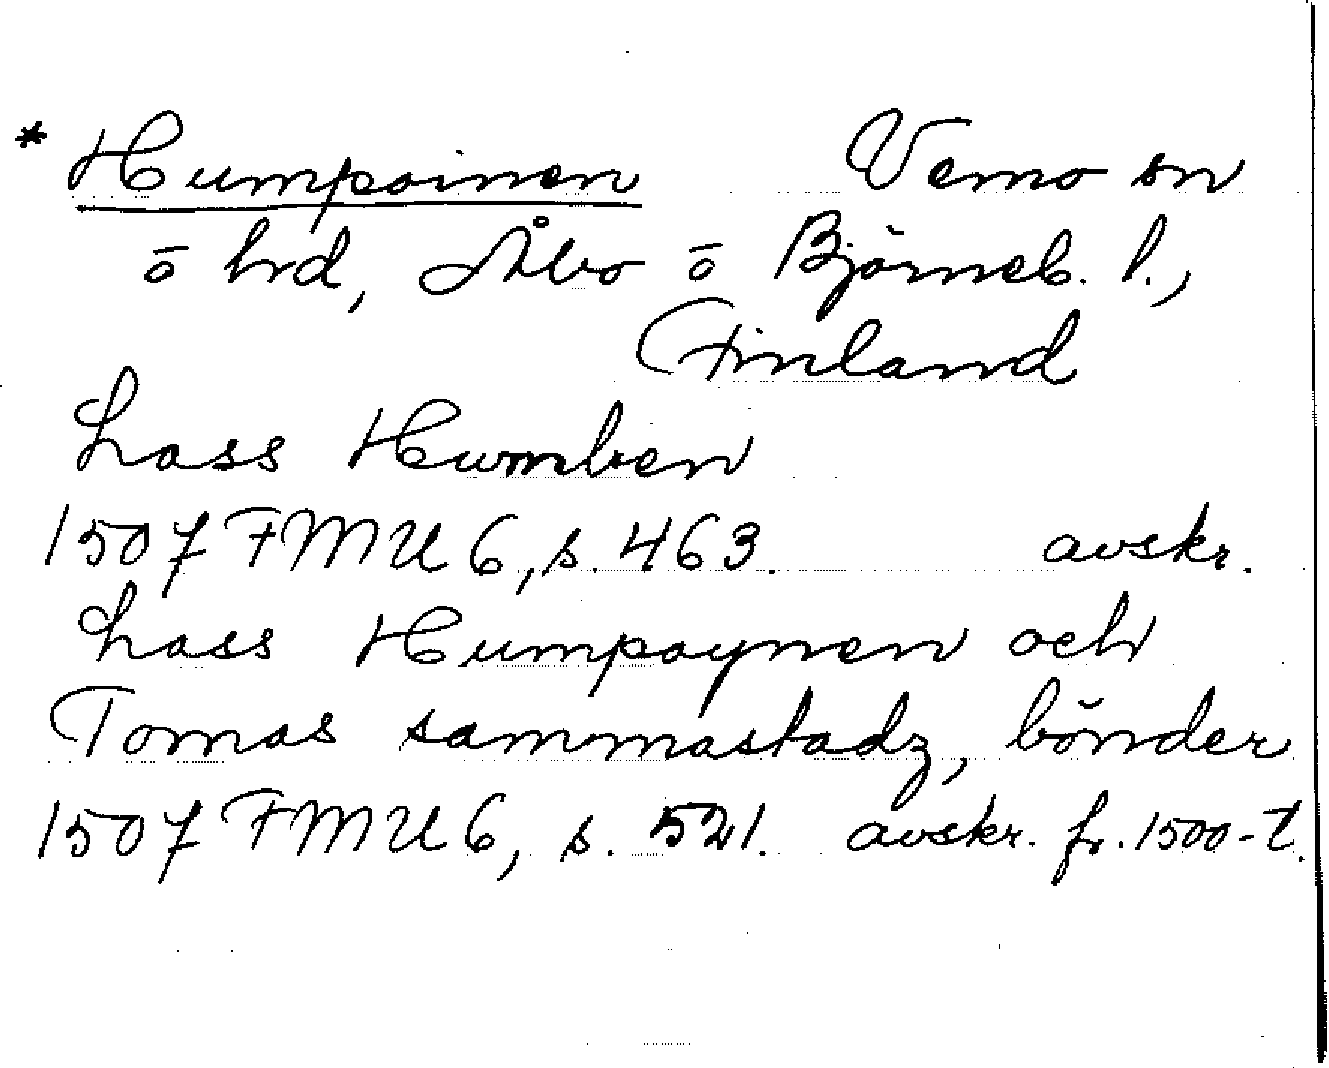 * Humpoinen Vemo sn
ō hrd, Åbo ō Björneb. l.,
Finland
Lass Humben
1507 FMU 6, s. 463. avskr.
Lass Humpoynen och
Tomas sammastadz, bönder
1507 FMU 6, s. 521. avskr. fr. 1500-t.